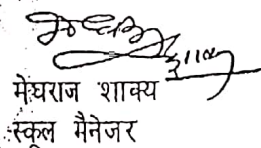 मेघराज शाक्य
स्कूल मैनेजर